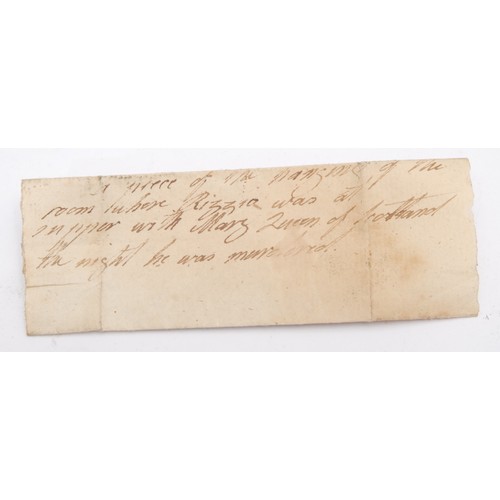 a piece of the hangings of the
room where Rizzia was at
supper with Mary Queen of Scotland
the night he was murdered.